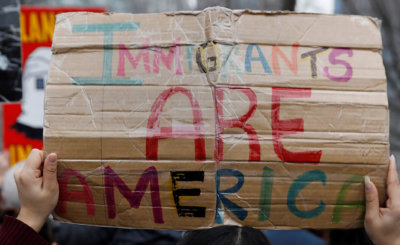 IMMIGRANTS
ARE
AMERICA
LAN